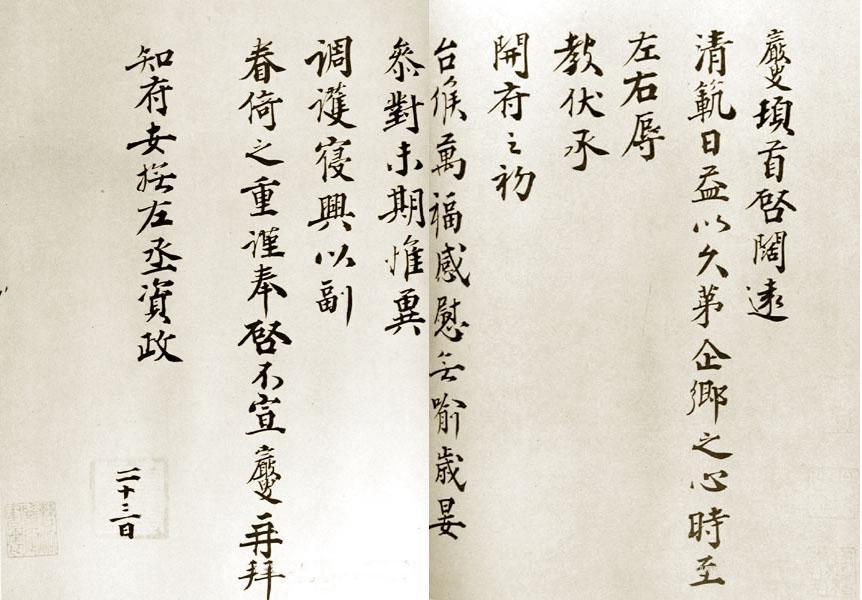 巖叟頓首啓闊遠
清範日益以久第企鄉之心時至
左右辱
教伏承
開府之初
台候萬福感慰無喻歲晏
叅對未期惟冀
調護寢興以副
眷倚之重謹奉啓不宣巖叟再拜
知府安撫左丞資政
二十三日